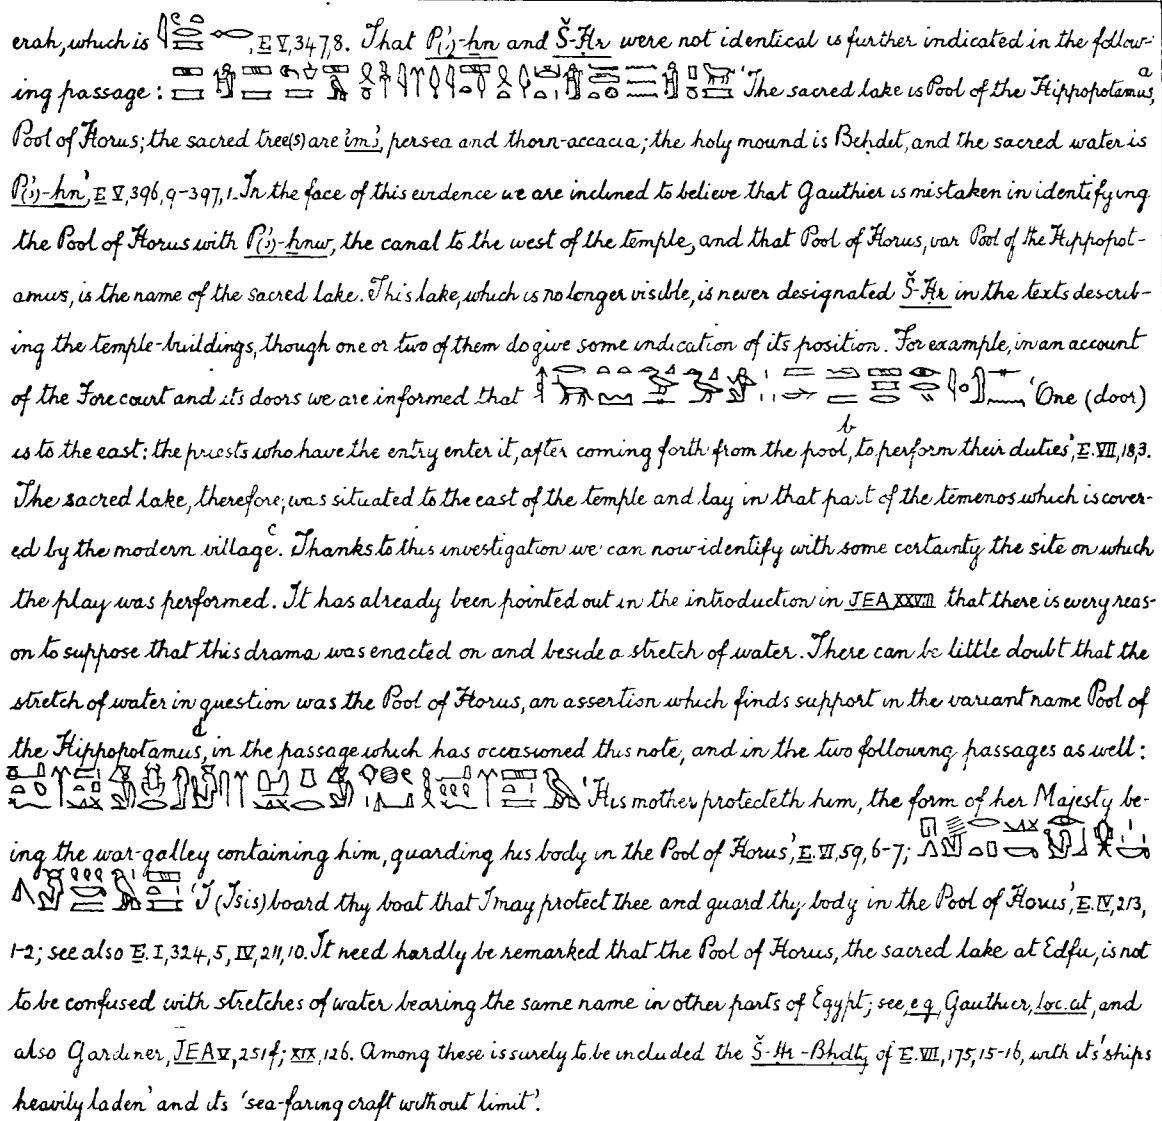 erah, which is , E V, 347,8. That P(ꜣ)-hn and Š-Ḥr were not identical is further indicated in the follow-
ing passage: 'The sacred lake is Pool of the Hippopotamus,ᵃ
Pool of Horus; the sacred tree(s) are ἰmꜣ, persea and thorn-accacia; the holy mound is Beḥdet, and the sacred water is
P(ꜣ)-hn', E V, 396, 9-397, 1. In the face of this evidence we are inclined to believe that Gauthier is mistaken in identifying
the Pool of Horus with P(ꜣ)-hnw, the canal to the west of the temple, and that Pool of Horus, var Pool of the Hippopot-
amus, is the name of the sacred lake. This lake, which is no longer visible, is never designated Š-Ḥr in the texts describ-
ing the temple-buildings, though one or two of them do give some indication of its position. For example, in an account
of the Forecourt and its doors we are informed that 'One (door)
is to the east: the priests who have the entry enter it, after coming forth from the pool,ᵇ to perform their duties', E. VII, 18,3.
The sacred lake, therefore, was situated to the east of the temple and lay in that part of the temenos which is cover-
ed by the modern villageᶜ. Thanks to this investigation we can now identify with some certainty the site on which
the play was performed. It has already been pointed out in the introduction in JEA XXVIII that there is every reas-
on to suppose that this drama was enacted on and beside a stretch of water. There can be little doubt that the
stretch of water in question was the Pool of Horus, an assertion which finds support in the variant name Pool of
the Hippopotamus,ᵈ in the passage which has occasioned this note, and in the two following passages as well:
'His mother protecteth him, the form of her Majesty be-
ing the war-galley containing him, guarding his body in the Pool of Horus', E. VI, 59, 6-7;
'I (Isis) board thy boat that I may protect thee and guard thy body in the Pool of Horus', E. IV, 213,
1-2; see also E. I, 324, 5, IV, 211, 10. It need hardly be remarked that the Pool of Horus, the sacred lake at Edfu, is not
to be confused with stretches of water bearing the same name in other parts of Egypt; see, e.g, Gauthier, loc. cit, and
also Gardiner, JEA V, 251 f; XIX, 126. Among these is surely to be included the Š-Ḥr-Bḥdty of E. VII, 175, 15-16, with its 'ships
heavily laden' and its 'sea-faring craft without limit'.